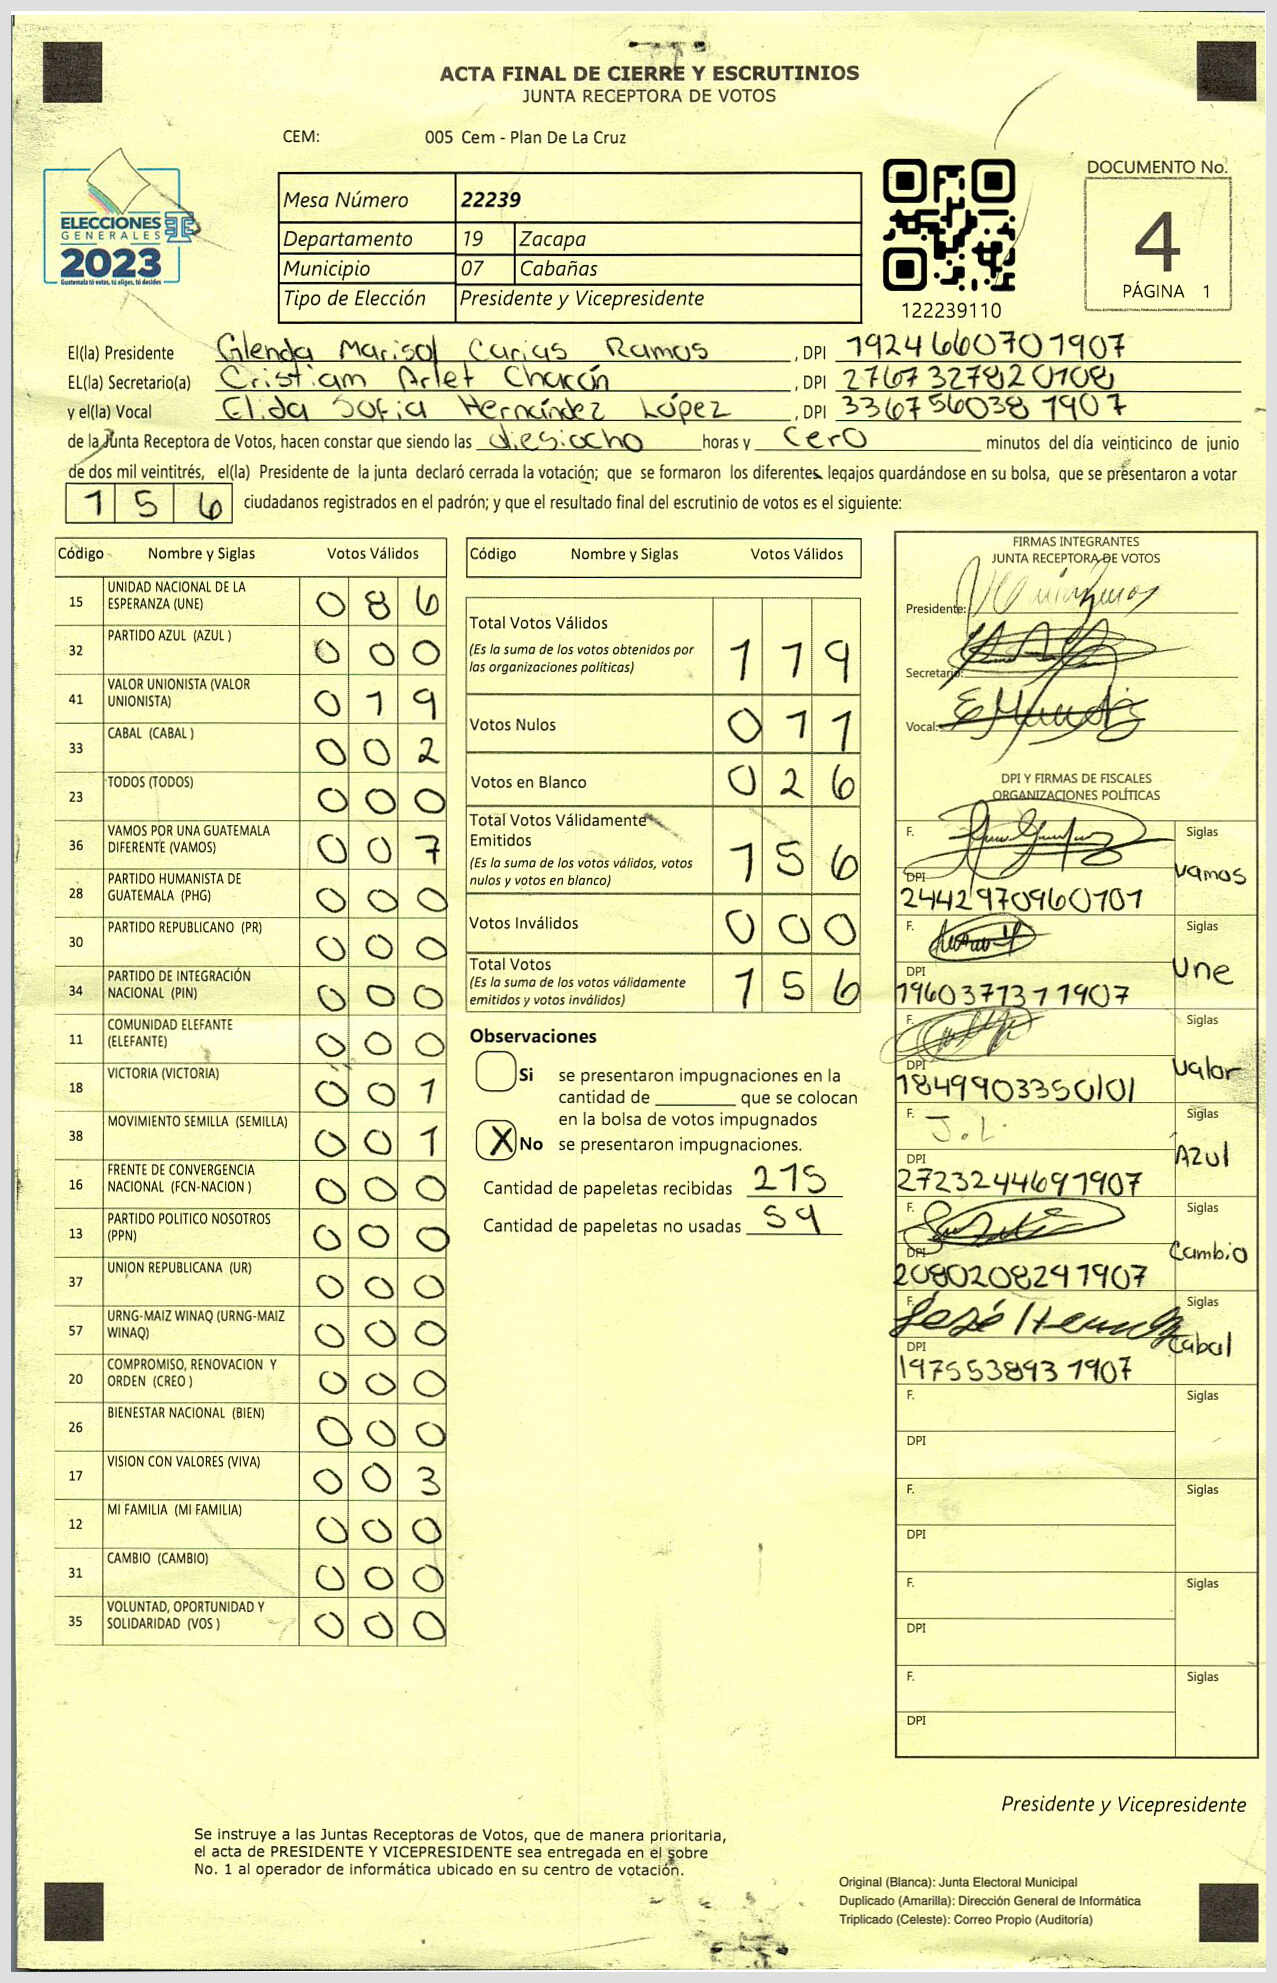 ACTA FINAL DE CIERRE Y ESCRUTINIOS
JUNTA RECEPTORA DE VOTOS
CEM: 005 Cem - Plan De La Cruz
ELECCIONES
GENERALES
2023
Guatemala tú votas, tú eliges, tú decides
Mesa Número 22239
Departamento 19 Zacapa
Municipio 07 Cabañas
Tipo de Elección Presidente y Vicepresidente
122239110
DOCUMENTO No.
4
PÁGINA 1
El(la) Presidente Glenda Marisol Carias Ramos, DPI 1924660701907
EL(la) Secretario(a) Cristiam Arlet Chacón, DPI 2767327820108
y el(la) Vocal Elida Sofia Hernández López, DPI 3367560381907
de la Junta Receptora de Votos, hacen constar que siendo las diesiocho horas y cero minutos del día veinticinco de junio
de dos mil veintitrés, el(la) Presidente de la junta declaró cerrada la votación; que se formaron los diferentes legajos quardándose en su bolsa, que se presentaron a votar
156 ciudadanos registrados en el padrón; y que el resultado final del escrutinio de votos es el siguiente:
Código Nombre y Siglas Votos Válidos
15 UNIDAD NACIONAL DE LA ESPERANZA (UNE) 086
32 PARTIDO AZUL (AZUL ) 000
41 VALOR UNIONISTA (VALOR UNIONISTA) 019
33 CABAL (CABAL ) 002
23 TODOS (TODOS) 000
36 VAMOS POR UNA GUATEMALA DIFERENTE (VAMOS) 007
28 PARTIDO HUMANISTA DE GUATEMALA (PHG) 000
30 PARTIDO REPUBLICANO (PR) 000
34 PARTIDO DE INTEGRACIÓN NACIONAL (PIN) 000
11 COMUNIDAD ELEFANTE (ELEFANTE) 000
18 VICTORIA (VICTORIA) 001
38 MOVIMIENTO SEMILLA (SEMILLA) 001
16 FRENTE DE CONVERGENCIA NACIONAL (FCN-NACION ) 000
13 PARTIDO POLITICO NOSOTROS (PPN) 000
37 UNION REPUBLICANA (UR) 000
57 URNG-MAIZ WINAQ (URNG-MAIZ WINAQ) 000
20 COMPROMISO, RENOVACION Y ORDEN (CREO ) 000
26 BIENESTAR NACIONAL (BIEN) 000
17 VISION CON VALORES (VIVA) 003
12 MI FAMILIA (MI FAMILIA) 000
31 CAMBIO (CAMBIO) 000
35 VOLUNTAD, OPORTUNIDAD Y SOLIDARIDAD (VOS ) 000
Código Nombre y Siglas Votos Válidos
Total Votos Válidos 119
(Es la suma de los votos obtenidos por
las organizaciones políticas)
Votos Nulos 011
Votos en Blanco 026
Total Votos Válidamente
Emitidos 156
(Es la suma de los votos válidos, votos
nulos y votos en blanco)
Votos Inválidos 000
Total Votos 156
(Es la suma de los votos válidamente
emitidos y votos inválidos)
Observaciones
Si se presentaron impugnaciones en la
cantidad de ________ que se colocan
en la bolsa de votos impugnados
X No se presentaron impugnaciones.
Cantidad de papeletas recibidas 215
Cantidad de papeletas no usadas 59
FIRMAS INTEGRANTES
JUNTA RECEPTORA DE VOTOS
Presidente:
Secretario:
Vocal:
DPI Y FIRMAS DE FISCALES
ORGANIZACIONES POLÍTICAS
F. Siglas
DPI Vamos
2442970960101
F. Siglas
DPI Une
1960371311907
F. Siglas
DPI Valor
1849903350101
F. J.L. Siglas
DPI Azul
2723244691907
F. Siglas
DPI Cambio
2080208291907
F. Siglas
DPI Cabal
1975538931907
F. Siglas
DPI
F. Siglas
DPI
F. Siglas
DPI
F. Siglas
DPI
Presidente y Vicepresidente
Se instruye a las Juntas Receptoras de Votos, que de manera prioritaria,
el acta de PRESIDENTE Y VICEPRESIDENTE sea entregada en el sobre
No. 1 al operador de informática ubicado en su centro de votación.
Original (Blanca): Junta Electoral Municipal
Duplicado (Amarilla): Dirección General de Informática
Triplicado (Celeste): Correo Propio (Auditoría)